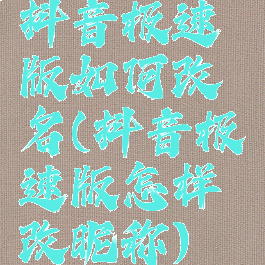 抖音极速
版如何改
名(抖音极
速版怎样
改昵称)